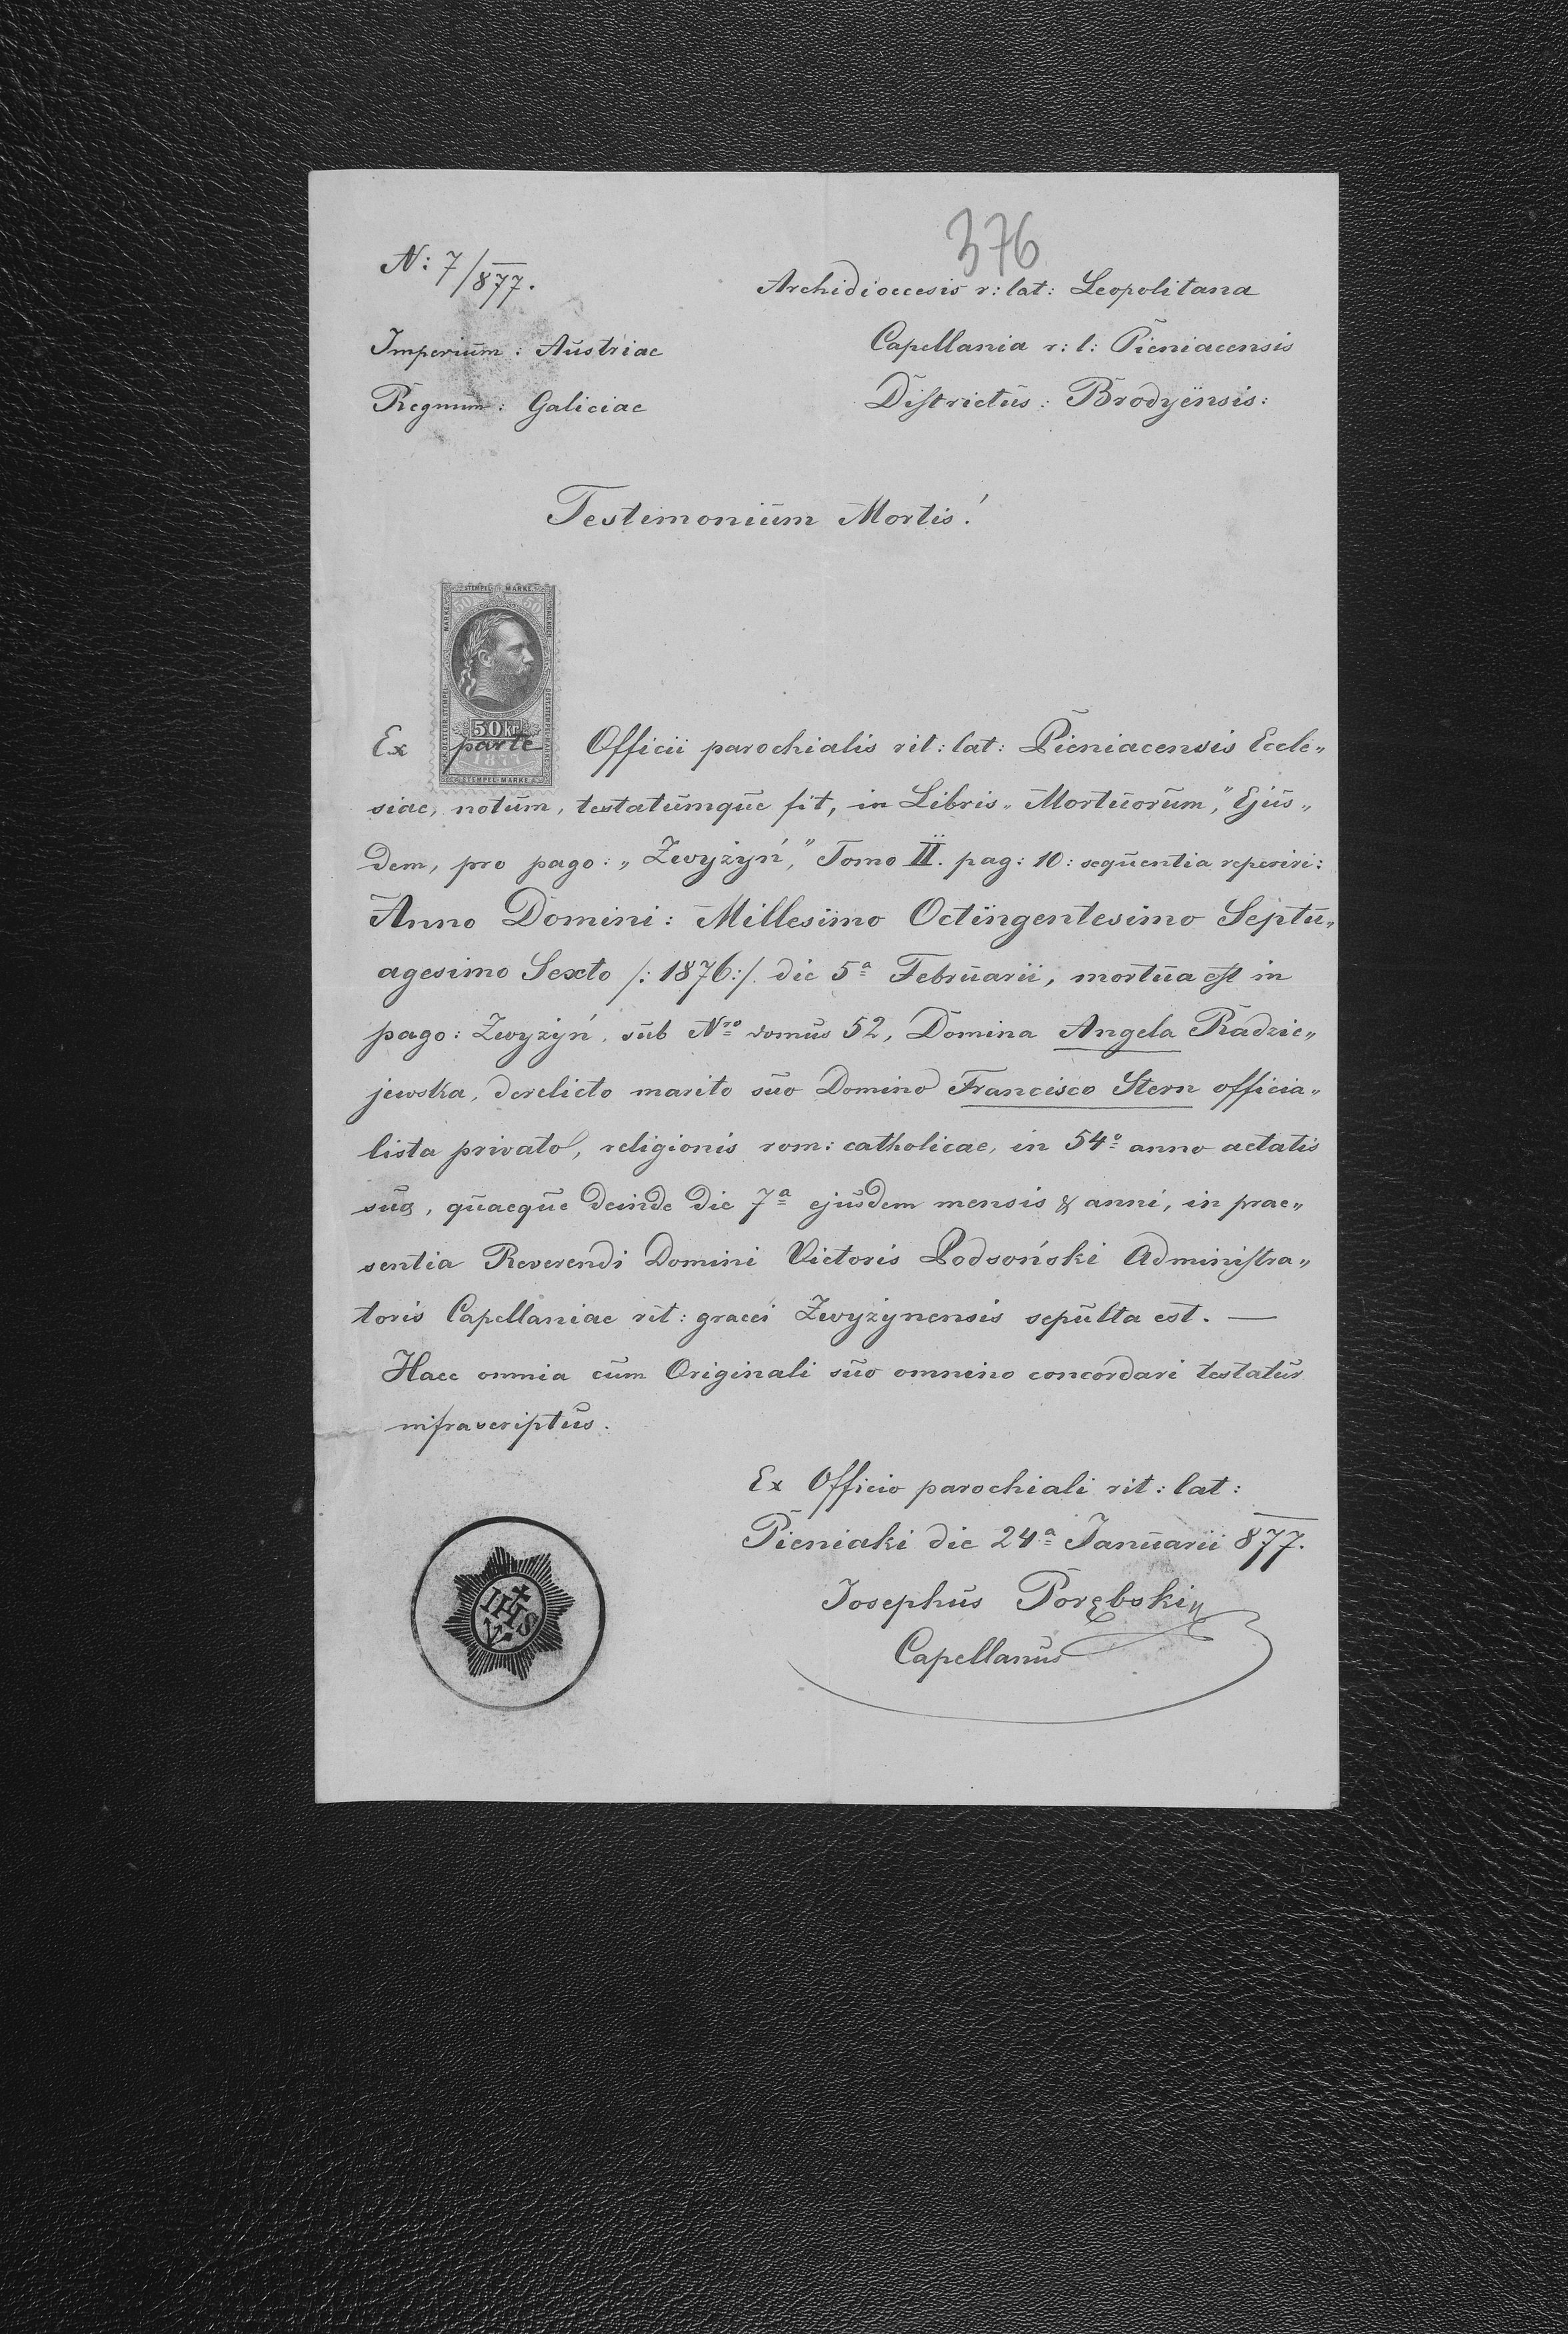 376
N: 7/877.
Archidioecesis r: lat: Leopolitana
Imperium: Austriae
Capellania r: l: Pieniacensis
Regnum: Galiciae
Districtus: Brodyensis:
Testimonium Mortis!
STEMPEL MARKE
50 Kr
1877
STEMPEL-MARKE
Ex parte Officii parochialis rit: lat: Pieniacensis Eccle„
siae, notum, testatumque fit, in Libris „Mortuorum,” Ejus„
dem, pro pago: „Zwyżyń,” Tomo II. pag: 10: sequentia reperiri:
Anno Domini: Millesimo Octingentesimo Septu„
agesimo Sexto /: 1876:/ die 5ª Februarii, mortua est in
pago: Zwyżyń, sub Nro domus 52, Domina Angela Radzie„
jewska, derelicto marito suo Domino Francisco Stern officia„
lista privato, religionis rom: catholicae, in 54º anno aetatis
sua, quaeque deinde die 7ª ejusdem mensis & anni, in prae„
sentia Reverendi Domini Victoris Podsoński Administra„
toris Capellaniae rit: graeci Zwyżynensis sepulta est. —
Haec omnia cum Originali suo omnino concordari testatur
infrascriptus.
Ex Officio parochiali rit: lat:
Pieniaki die 24ª Januarii 877.
Josephus Porębski
Capellanus
IHS